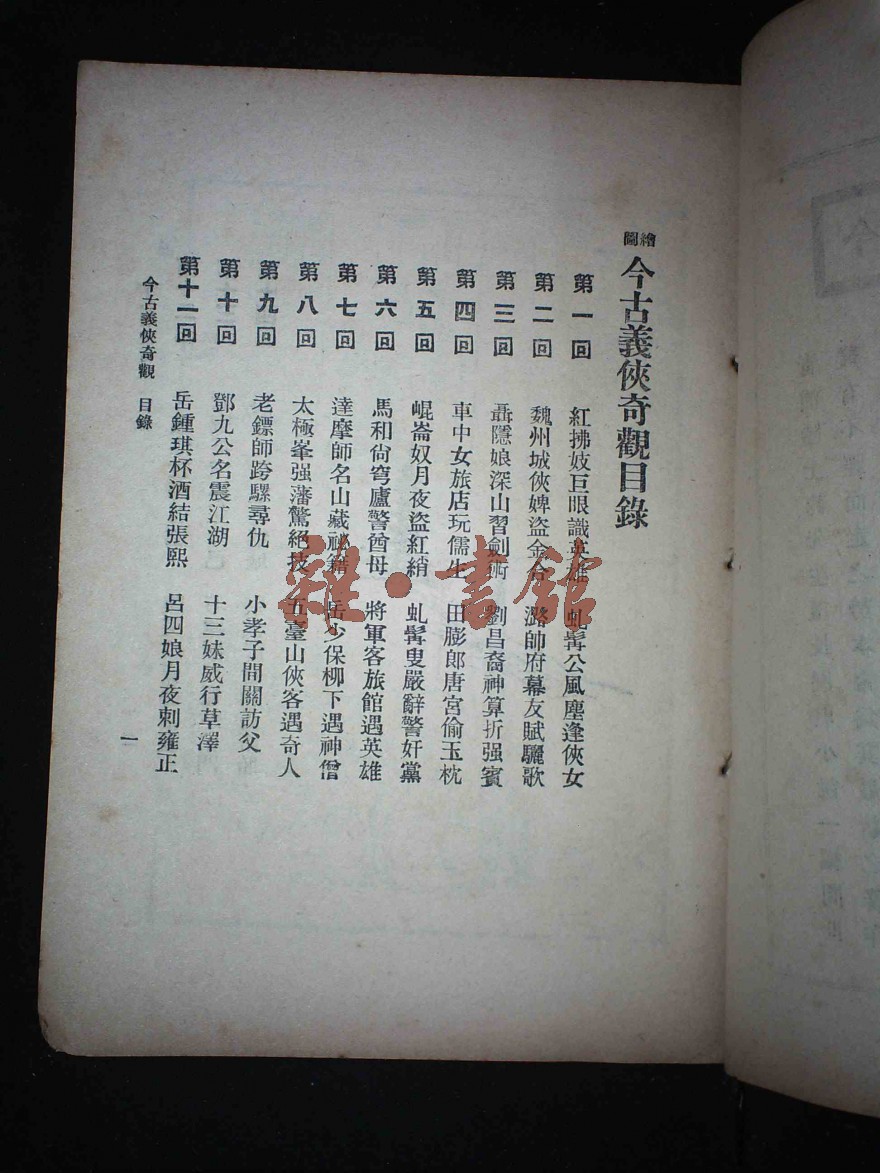 繪圖
今古義俠奇觀目錄
第一回 紅拂妓巨眼識英雄 虬髯公風塵逢俠女
第二回 魏州城俠婢盜金合 潞帥府幕友賦驪歌
第三回 聶隱娘深山習劍術 劉昌裔神算折强賓
第四回 車中女旅店玩儒生 田膨郎唐宮偷玉枕
第五回 崐崙奴月夜盜紅綃 虬髯叟嚴辭警奸黨
第六回 馬和尙穹廬警酋母 將軍客旅館遇英雄
第七回 達摩師名山藏祕籍 岳少保柳下遇神僧
第八回 太極峯强藩驚絕技 五臺山俠客遇奇人
第九回 老鏢師跨騾尋仇 小孝子間關訪父
第十回 鄧九公名震江湖 十三妹威行草澤
第十一回 岳鍾琪杯酒結張熙 呂四娘月夜刺雍正
今古義俠奇觀 目錄
一
雜·書館